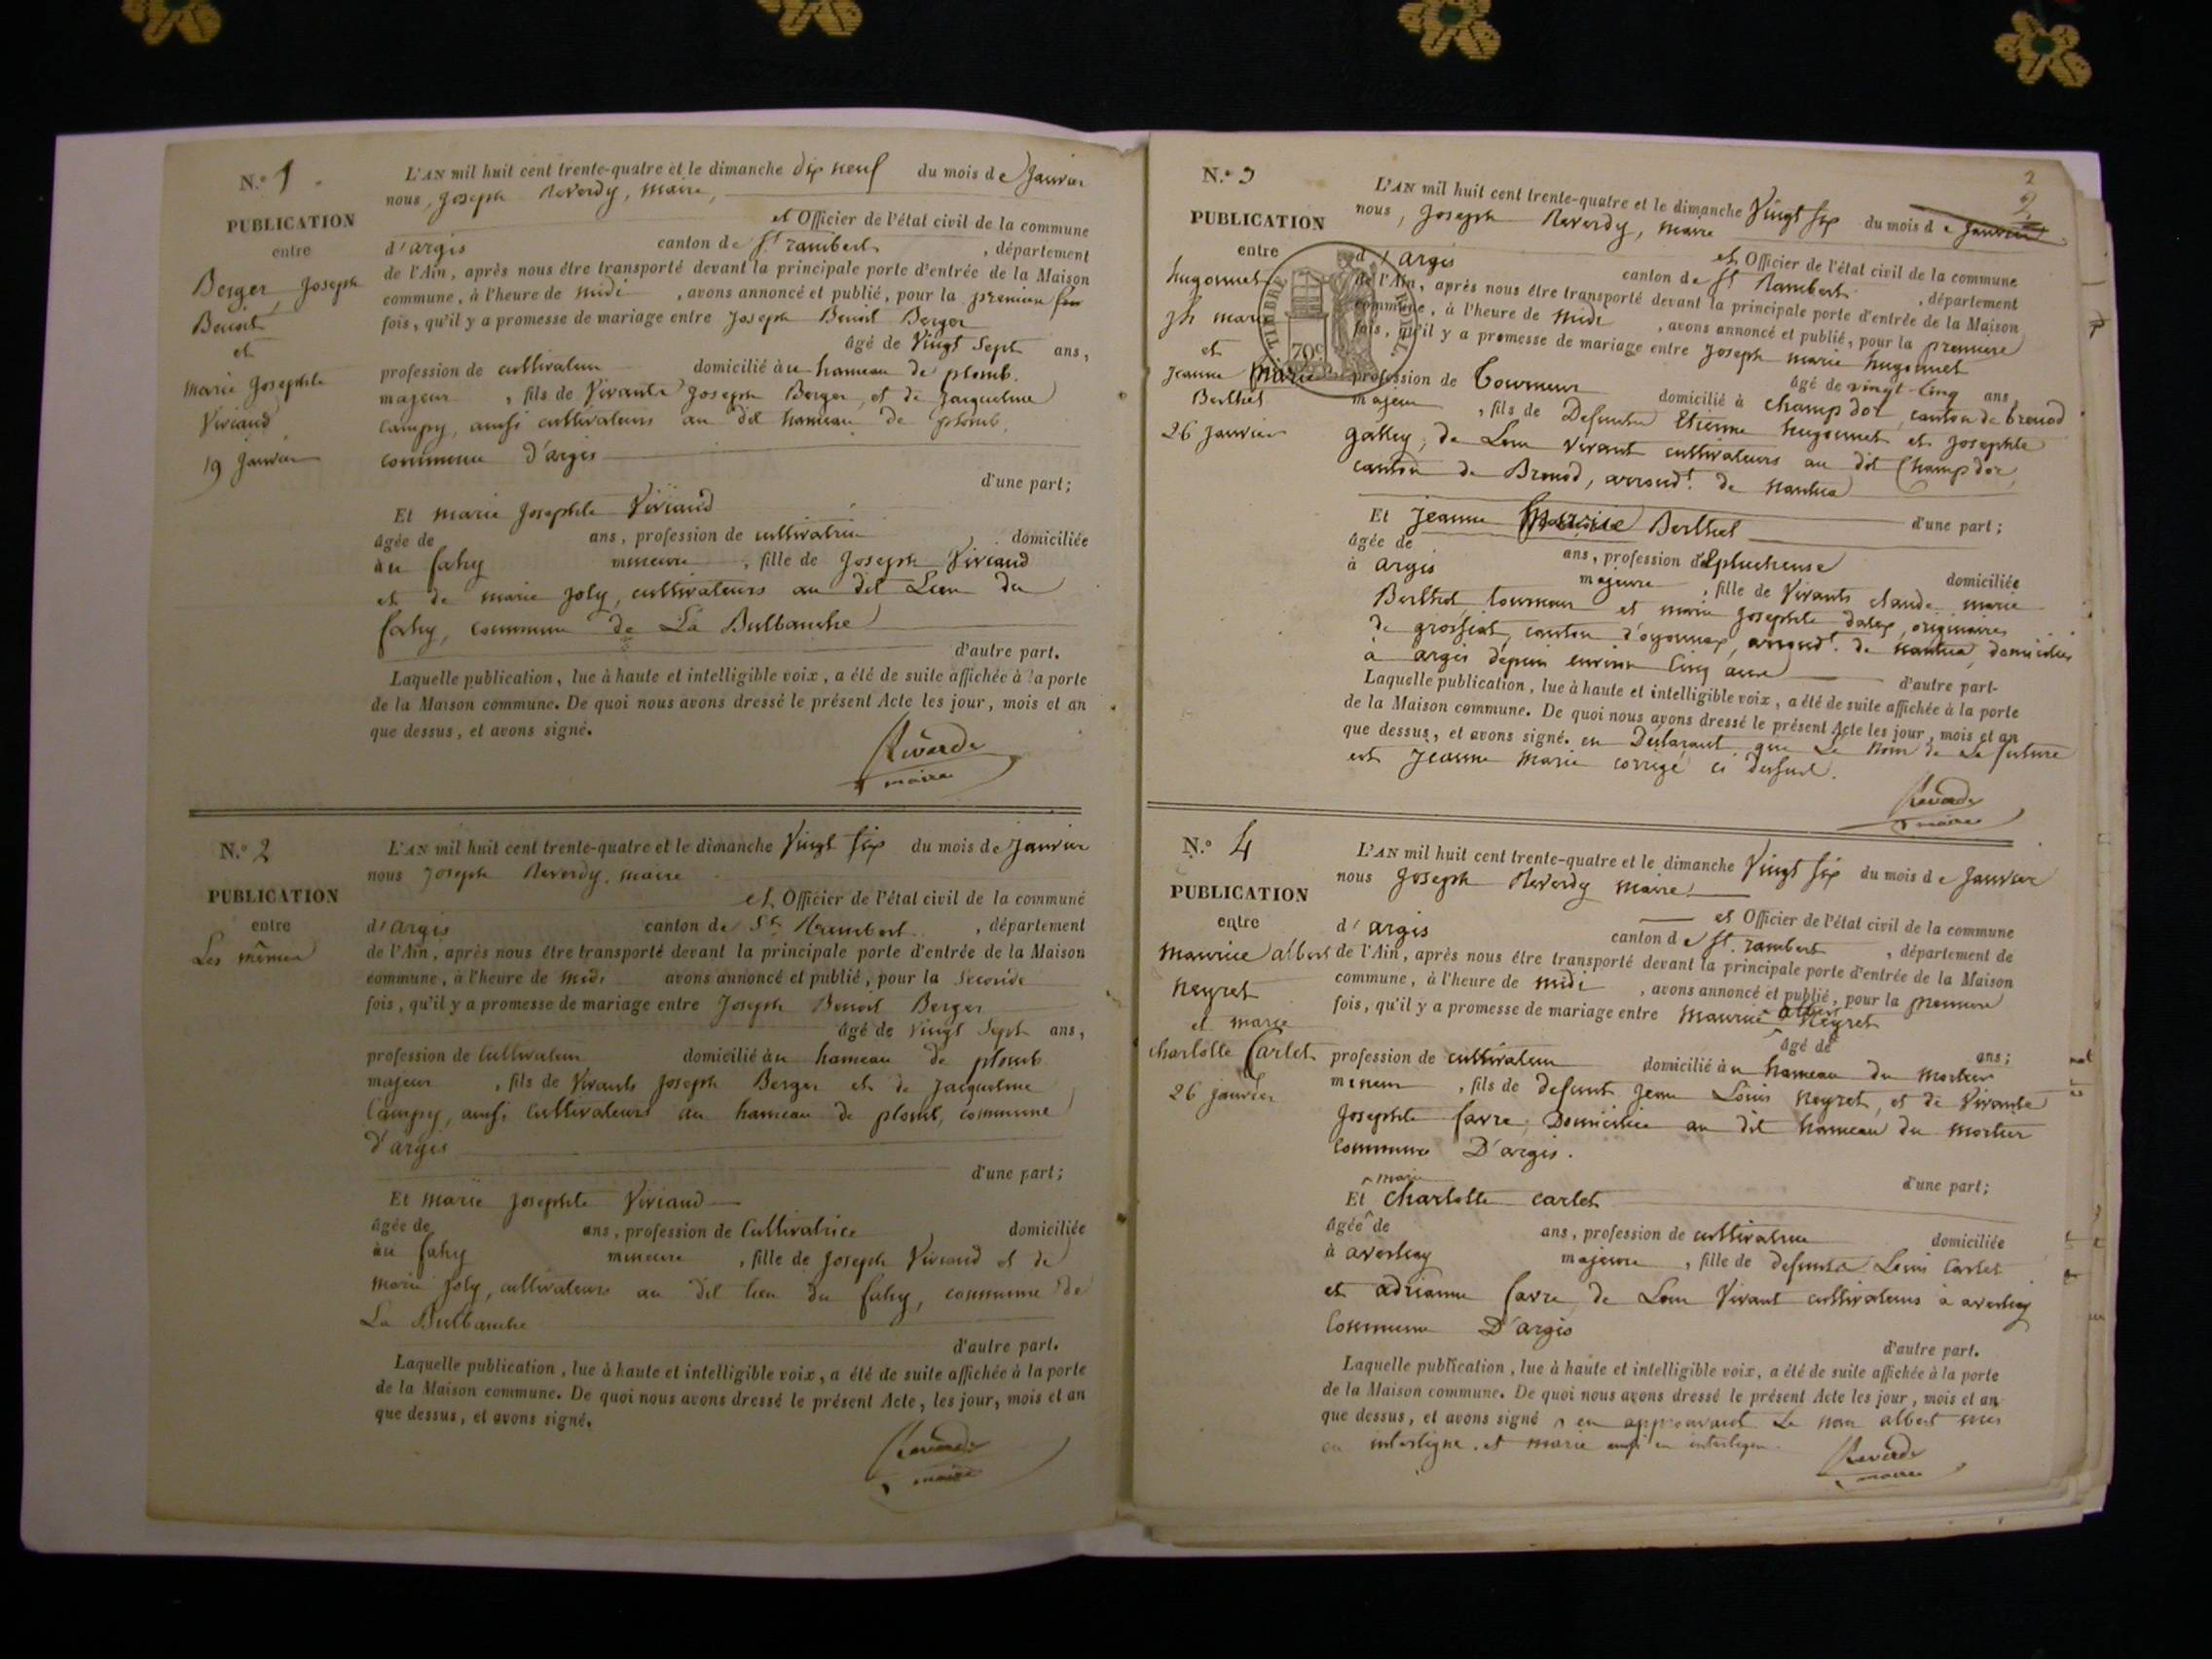 N.º 1
PUBLICATION
entre
Berger Joseph
Benoit
et
marie Josephte
Viviand
19 Janvier
L'AN mil huit cent trente-quatre et le dimanche dix neuf du mois de Janvier
nous, Joseph Reverdy, maire,
et Officier de l'état civil de la commune
d'argis canton de St rambert , département
de l'Ain, après nous être transporté devant la principale porte d'entrée de la Maison
commune, à l'heure de midi , avons annoncé et publié, pour la premiere
fois, qu'il y a promesse de mariage entre Joseph Benoit Berger
âgé de Vingt Sept ans,
profession de cultivateur domicilié au hameau de plomb.
majeur , fils de Vivants Joseph Berger et de Jacqueline
Campy, aussi cultivateurs au dit hameau de plomb,
commune d'argis
d'une part;
Et marie Josephte Viviand
âgée de ans, profession de cultivatrice domiciliée
au fahy mineure , fille de Joseph Viviand
et de marie Joly, cultivateurs au dit Lieu du
fahy, commune de La Burbanche
d'autre part.
Laquelle publication, lue à haute et intelligible voix, a été de suite affichée à la porte
de la Maison commune. De quoi nous avons dressé le présent Acte les jour, mois et an
que dessus, et avons signé.
Reverdy
maire
N.º 2
PUBLICATION
entre
Les mêmes
L'AN mil huit cent trente-quatre et le dimanche Vingt six du mois de Janvier
nous Joseph Reverdy, maire
et Officier de l'état civil de la commune
d'argis canton de St Rambert , département
de l'Ain, après nous être transporté devant la principale porte d'entrée de la Maison
commune, à l'heure de midi avons annoncé et publié, pour la Seconde
fois, qu'il y a promesse de mariage entre Joseph Benoit Berger
âgé de Vingt Sept ans,
profession de Cultivateur domicilié au hameau de plomb
majeur , fils de Vivants Joseph Berger et de Jacqueline
Campy, aussi Cultivateurs au hameau de plomb, commune
d'argis
d'une part;
Et marie Josephte Viviand
âgée de ans, profession de Cultivatrice domiciliée
au fahy mineure , fille de Joseph Viviand et de
marie Joly, cultivateurs au dit lieu du fahy, commune de
La Burbanche
d'autre part.
Laquelle publication, lue à haute et intelligible voix, a été de suite affichée à la porte
de la Maison commune. De quoi nous avons dressé le présent Acte, les jour, mois et an
que dessus, et avons signé.
Reverdy
maire
2
2
N.º 3
PUBLICATION
entre
hugonnet
Jh marie
et
Jeanne Marie
Berthet
26 Janvier
TIMBRE ROYAL
70c
L'AN mil huit cent trente-quatre et le dimanche Vingt six du mois de Janvier
nous, Joseph Reverdy, maire
et Officier de l'état civil de la commune
d'argis canton de St Rambert , département
de l'Ain, après nous être transporté devant la principale porte d'entrée de la Maison
commune, à l'heure de midi , avons annoncé et publié, pour la premiere
fois, qu'il y a promesse de mariage entre Joseph marie hugonnet
âgé de vingt-cinq ans,
profession de Tourneur domicilié à champ dor, canton de brenod
majeur , fils de Defunts Etienne hugonnet et Josephte
gallay, de Leur vivant cultivateurs au dit Champ dor,
canton de Brenod, arrondt. de Nantua
d'une part;
Et Jeanne Marie Berthet
âgée de ans, profession d'Eplucheuse domiciliée
à argis majeure , fille de Vivants claude marie
Berthet, tourneur et marie Josephte , originaires
de grossiat, canton d'oyonnax, arrondt. de nantua, domiciliés
à argis depuis environ Cinq ans
d'autre part-
Laquelle publication, lue à haute et intelligible voix, a été de suite affichée à la porte
de la Maison commune. De quoi nous avons dressé le présent Acte les jour, mois et an
que dessus, et avons signé. en Déclarant que Le nom de La future
est Jeanne Marie corrigé ci dessus.
Reverdy
maire
N.º 4
PUBLICATION
entre
maurice albert
Neyret
et marie
charlotte Carlet
26 janvier
L'AN mil huit cent trente-quatre et le dimanche Vingt six du mois de Janvier
nous Joseph Reverdy maire
et Officier de l'état civil de la commune
d'argis canton de St. rambert , département de
de l'Ain, après nous être transporté devant la principale porte d'entrée de la Maison
commune, à l'heure de midi , avons annoncé et publié, pour la premiere
albert
fois, qu'il y a promesse de mariage entre maurice Neyret
âgé de ans;
profession de cultivateur domicilié au hameau du mortier
mineur , fils de defunt Jean Louis Neyret, et de Vivante
Josephte favre, Domiciliée au dit hameau du mortier
commune D'argis.
d'une part;
marie
Et charlotte carlet
âgée de ans, profession de cultivatrice domiciliée
à averliaz majeure , fille de defunts Louis Carlet
et adrianne favre, de Leur Vivant cultivateurs à averliaz
Commune D'argis
d'autre part.
Laquelle publication, lue à haute et intelligible voix, a été de suite affichée à la porte
de la Maison commune. De quoi nous avons dressé le présent Acte les jour, mois et an
que dessus, et avons signé, en approuvant Le nom albert mis
en interligne. et marie aussi en interligne.
Reverdy
maire